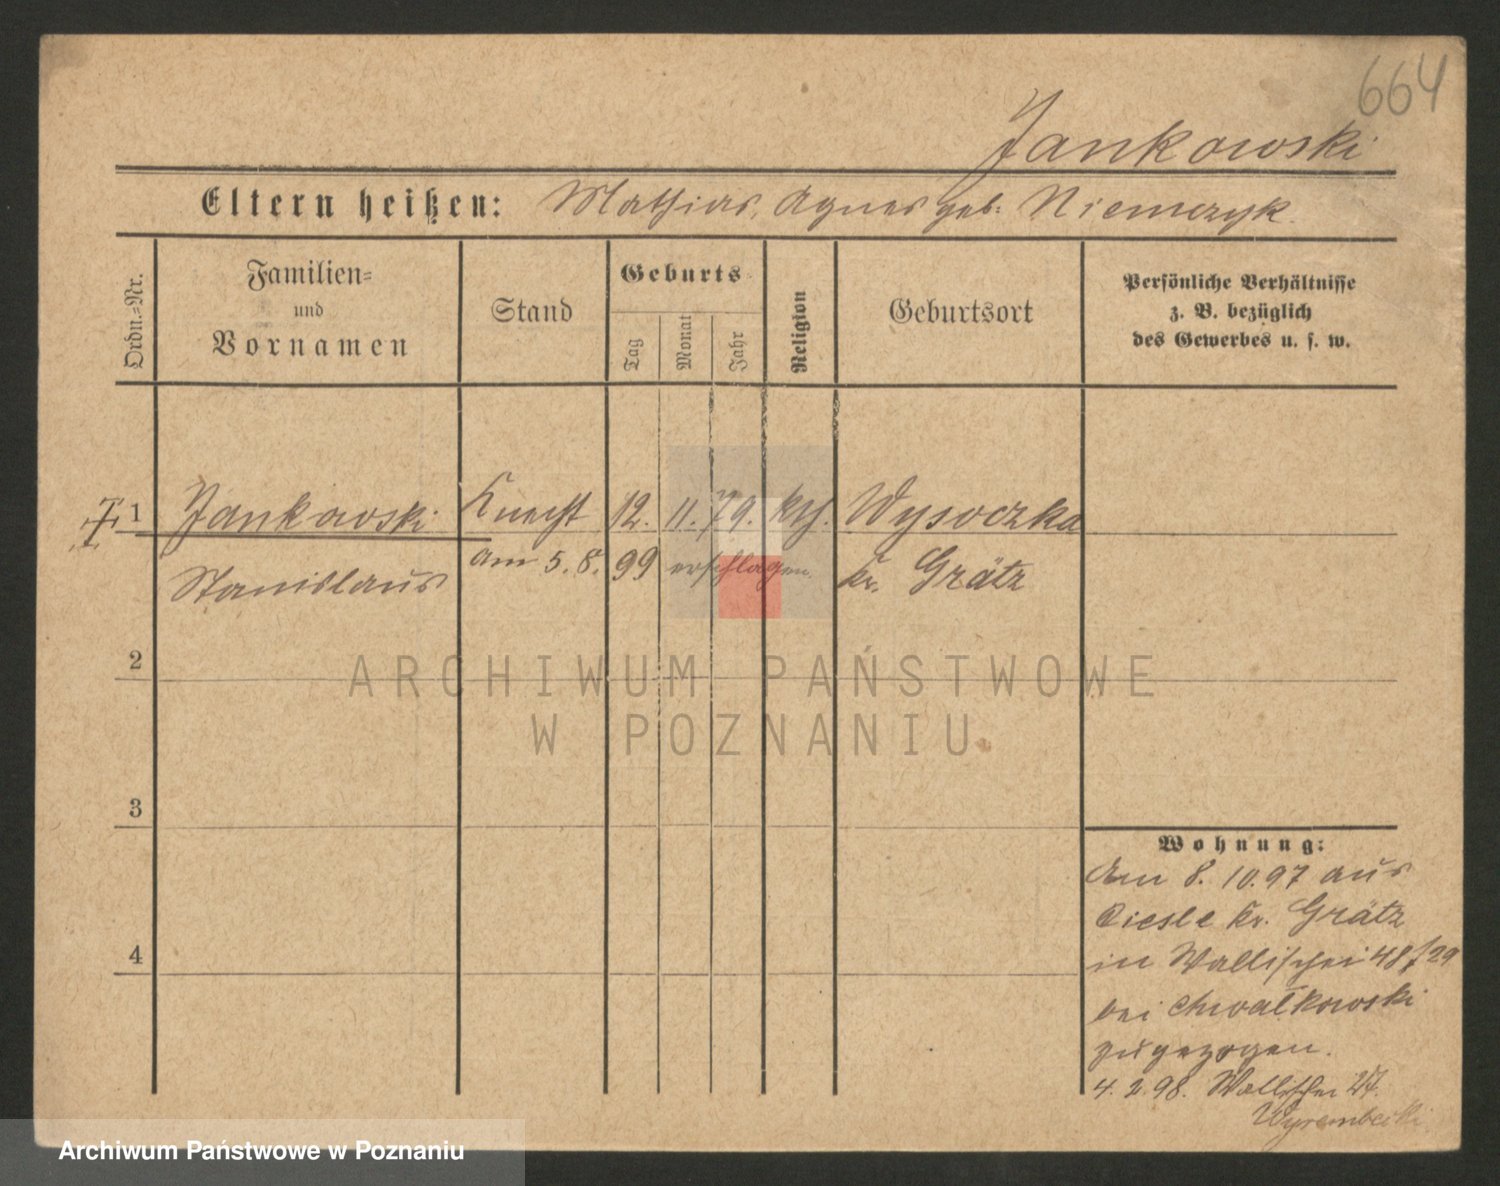 664
Jankowski
Eltern heißen: Mathias, Agnes geb. Niemczyk.
Ordn.-Nr.
Familien-
und
Vornamen
Stand
Geburts-
Tag
Monat
Jahr
Religion
Geburtsort
Persönliche Verhältnisse
z. B. bezüglich
des Gewerbes u. s. w.
1 Jankowski Knecht 12. 11. 79. kth. Wysoczka
am 5. 8. 99 erschlagen.
Stanislaus Kr. Grätz
2
3
4
Wohnung:
Am 8. 10. 97 aus
Kr. Grätz
in Wallischei 48/29
bei Chwalkowski
zugezogen.
4. 2. 98. Wallischei
Wyrembecki
ARCHIWUM PAŃSTWOWE
W POZNANIU
Archiwum Państwowe w Poznaniu